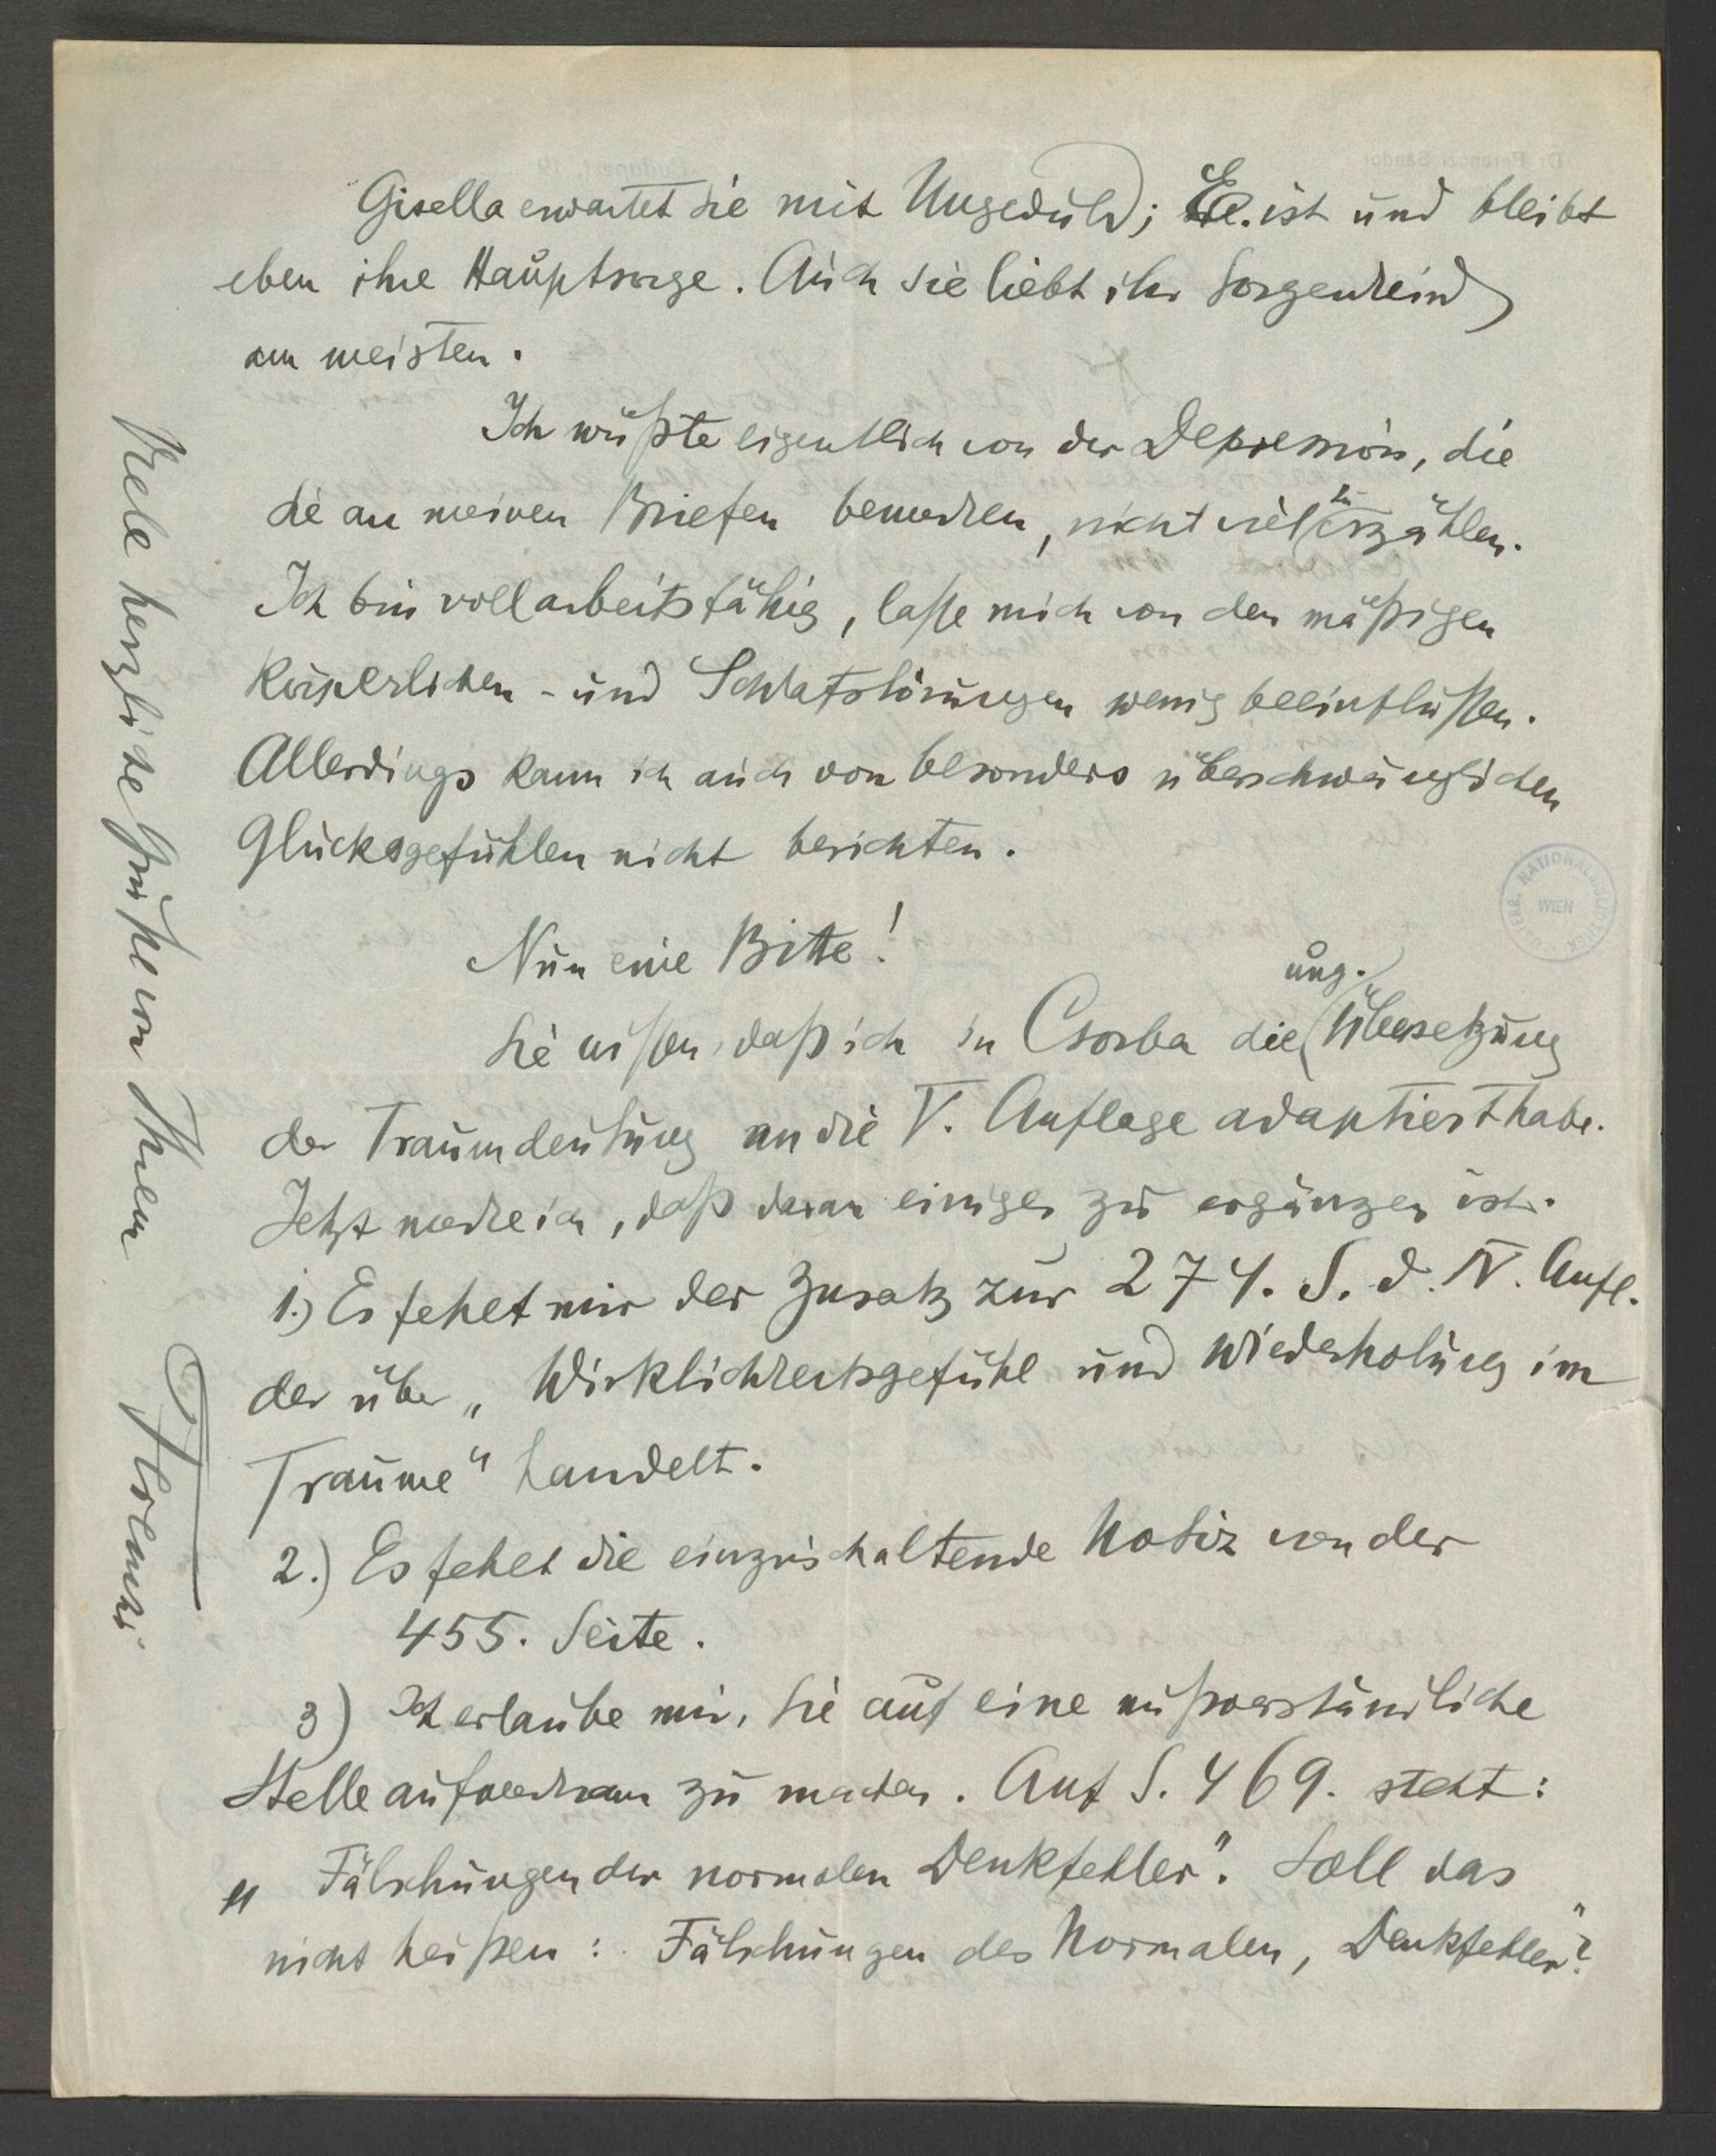 Gisella erwartet sie mit Ungeduld; El. ist und bleibt
eben ihre Hauptsorge. Auch sie liebt ihr Sorgenkind
am meisten.
Ich wüßte eigentlich von der Depression, die
Sie an meinen Briefen bemerken, nicht viel zu erzählen.
Ich bin voll arbeitsfähig, lasse mich von den mäßigen
körperlichen- und Schlafstörungen wenig beeinflussen.
Allerdings kann ich auch von besonders überschwänglichen
Glücksgefühlen nicht berichten.
Nun eine Bitte!
Sie wissen, daß ich in Csorba die ung. Übersetzung
der Traumdeutung an die V. Auflage adaptiert habe.
Jetzt merke ich, daß daran einiges zu ergänzen ist.
1.) Es fehlt mir der Zusatz zur 274. S. d. IV. Aufl.
der über „Wirklichkeitsgefühl und Wiederholung im
Traume" handelt.
2.) Es fehlt die einzuschaltende Notiz von der
455. Seite.
3) Ich erlaube mir, Sie auf eine mißverständliche
Stelle aufmerksam zu machen. Auf S. 469. steht:
„Fälschungen der normalen Denkfehler". Soll das
nicht heißen: Fälschungen des Normalen, Denkfehler"?
Viele herzliche Grüße von Ihrem
Ferenczi
NATIONALBIBLIOTHEK
WIEN